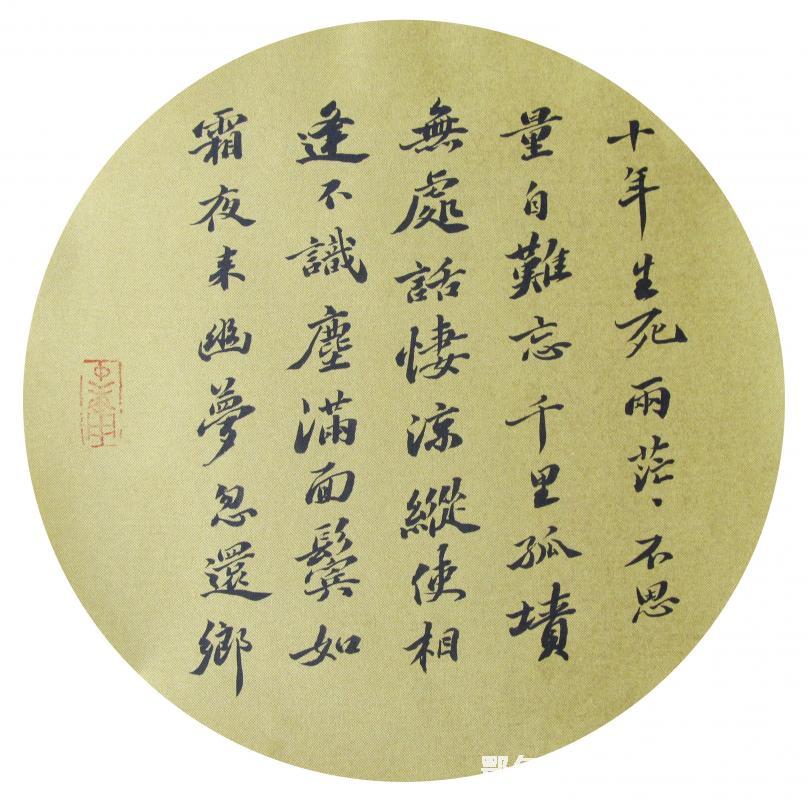 十年生死兩茫、不思
量自難忘千里孤墳
無處話悽涼縱使相
逢不識塵滿面鬢如
霜夜来幽夢忽還鄉